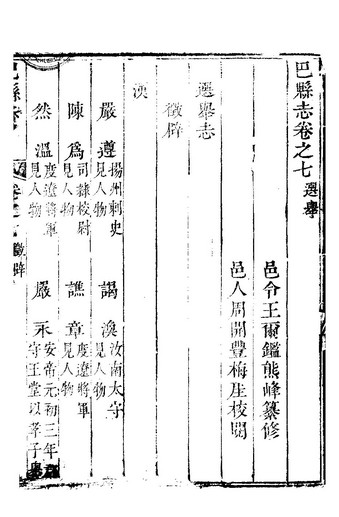 巴縣志卷之七 選舉
邑令王爾鑑熊峰纂修
邑人周開豐梅厓校閱
選舉志
徵辟
漢
嚴遵 揚州刺史 見人物
謁渙 汝南太守 見人物
陳為 司隸校尉 見人物
譙章 度遼將軍 見人物
然溫 度遼將軍 見人物
嚴永 安帝元初三年 守王堂以孝子舉
巴縣志 卷之七 徵辟